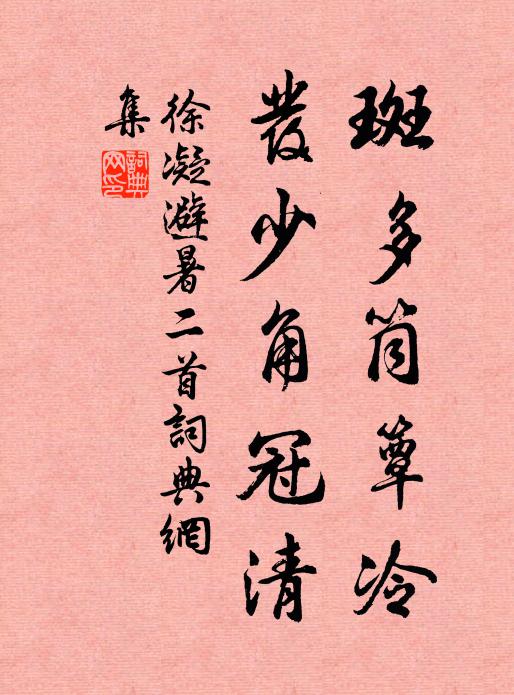 斑多筒簟冷
發少角冠清
徐凝避暑二首詞典網
集
詞典網印